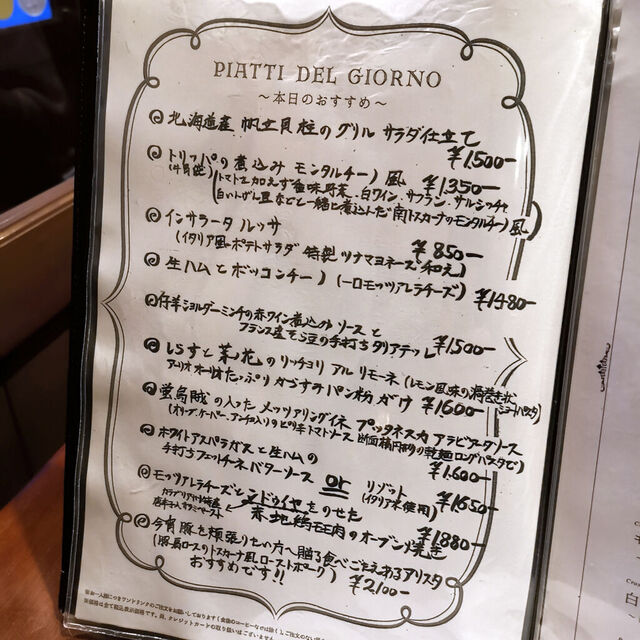 PIATTI DEL GIORNO
～本日のおすすめ～
北海道産 帆立貝柱のグリル サラダ仕立て
¥1,500-
トリッパの煮込み モンタルチーノ風 ¥1,350-
(トマトを加えず香味野菜、白ワイン、サフラン、サルシッチャ
白いんげん豆などと一緒に煮込んだ南トスカーナのモンタルチーノ風)
インサラータ ルッサ ¥850-
(イタリア風ポテトサラダ 特製ツナマヨネーズ和え)
生ハムとボッコンチーノ (一口モッツアレラチーズ) ¥1480-
仔羊ショルダーミンチの赤ワイン煮込みソースと
フランス産そら豆の手打ちタリアテッレ ¥1,500-
しらすと菜の花のリッチョリ アル リモーネ (レモン風味の渦巻き状
ショートパスタ)
アーリオオーリオ たっぷりからすみパン粉がけ ¥1600-
蛍烏賊の入ったメッツアリングイネ プッタネスカ アラビアータソース
(オリーブ、ケーパー、アンチョビ入りのピリ辛トマトソース 断面楕円形の乾麺ロングパスタで)
¥1,600-
ホワイトアスパラガスと生ハムの
手打ちフェットチーネ バターソース or リゾット
(イタリア米使用) ¥1650-
モッツアレラチーズとンドゥイヤをのせた
赤地鶏モモ肉のオーブン焼き
¥1,880-
今宵豚を頬張りたい方へ贈る食べごたえあるアリスタ
(豚肩ロースのトスカーナ風ローストポーク) ¥2,100-
おすすめです!!